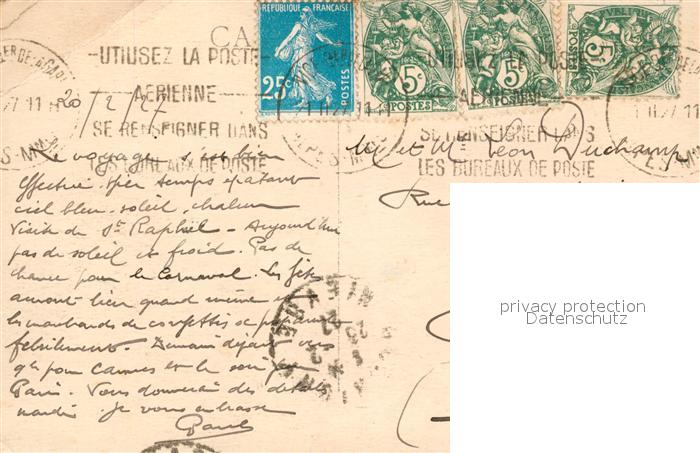 CA
RÉPUBLIQUE FRANÇAISE
25c POSTES
5c POSTES
5c POSTES
5c
UTILISEZ LA POSTE
AERIENNE
SE RENSEIGNER DANS
LES BUREAUX DE POSTE
UTILISEZ LA POSTE
AERIENNE
SE RENSEIGNER DANS
LES BUREAUX DE POSTE
20/2/27
Le voyage s'est bien
effectué. Hier temps épatant
ciel bleu. soleil, chaleur
Visite de St Raphaël - Aujourd'hui
pas de soleil et froid. Pas de
chance pour le Carnaval. Les fêtes
auront lieu quand même et
les marchands de confettis se préparent
fébrilement. Demain départ vers
pour Cannes et le soir
Paris. Vous donnerai des détails
mardi. je vous embrasse
Paul
Mr et Me Léon Duchamp
Rue
privacy protection
Datenschutz